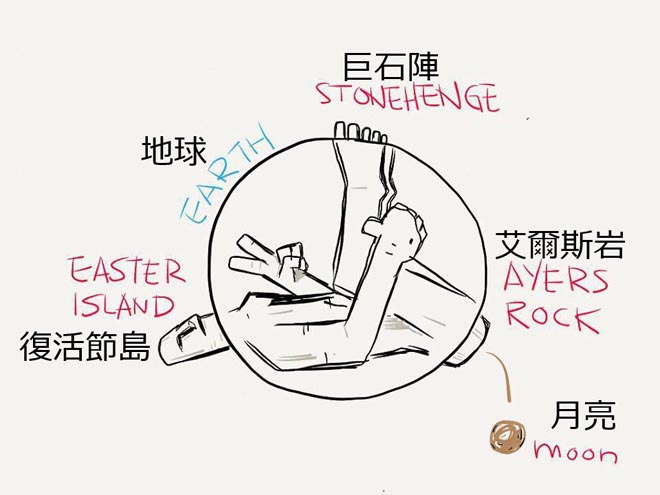 巨石陣
STONEHENGE
地球
EARTH
艾爾斯岩
AYERS
ROCK
EASTER
ISLAND
復活節島
月亮
moon